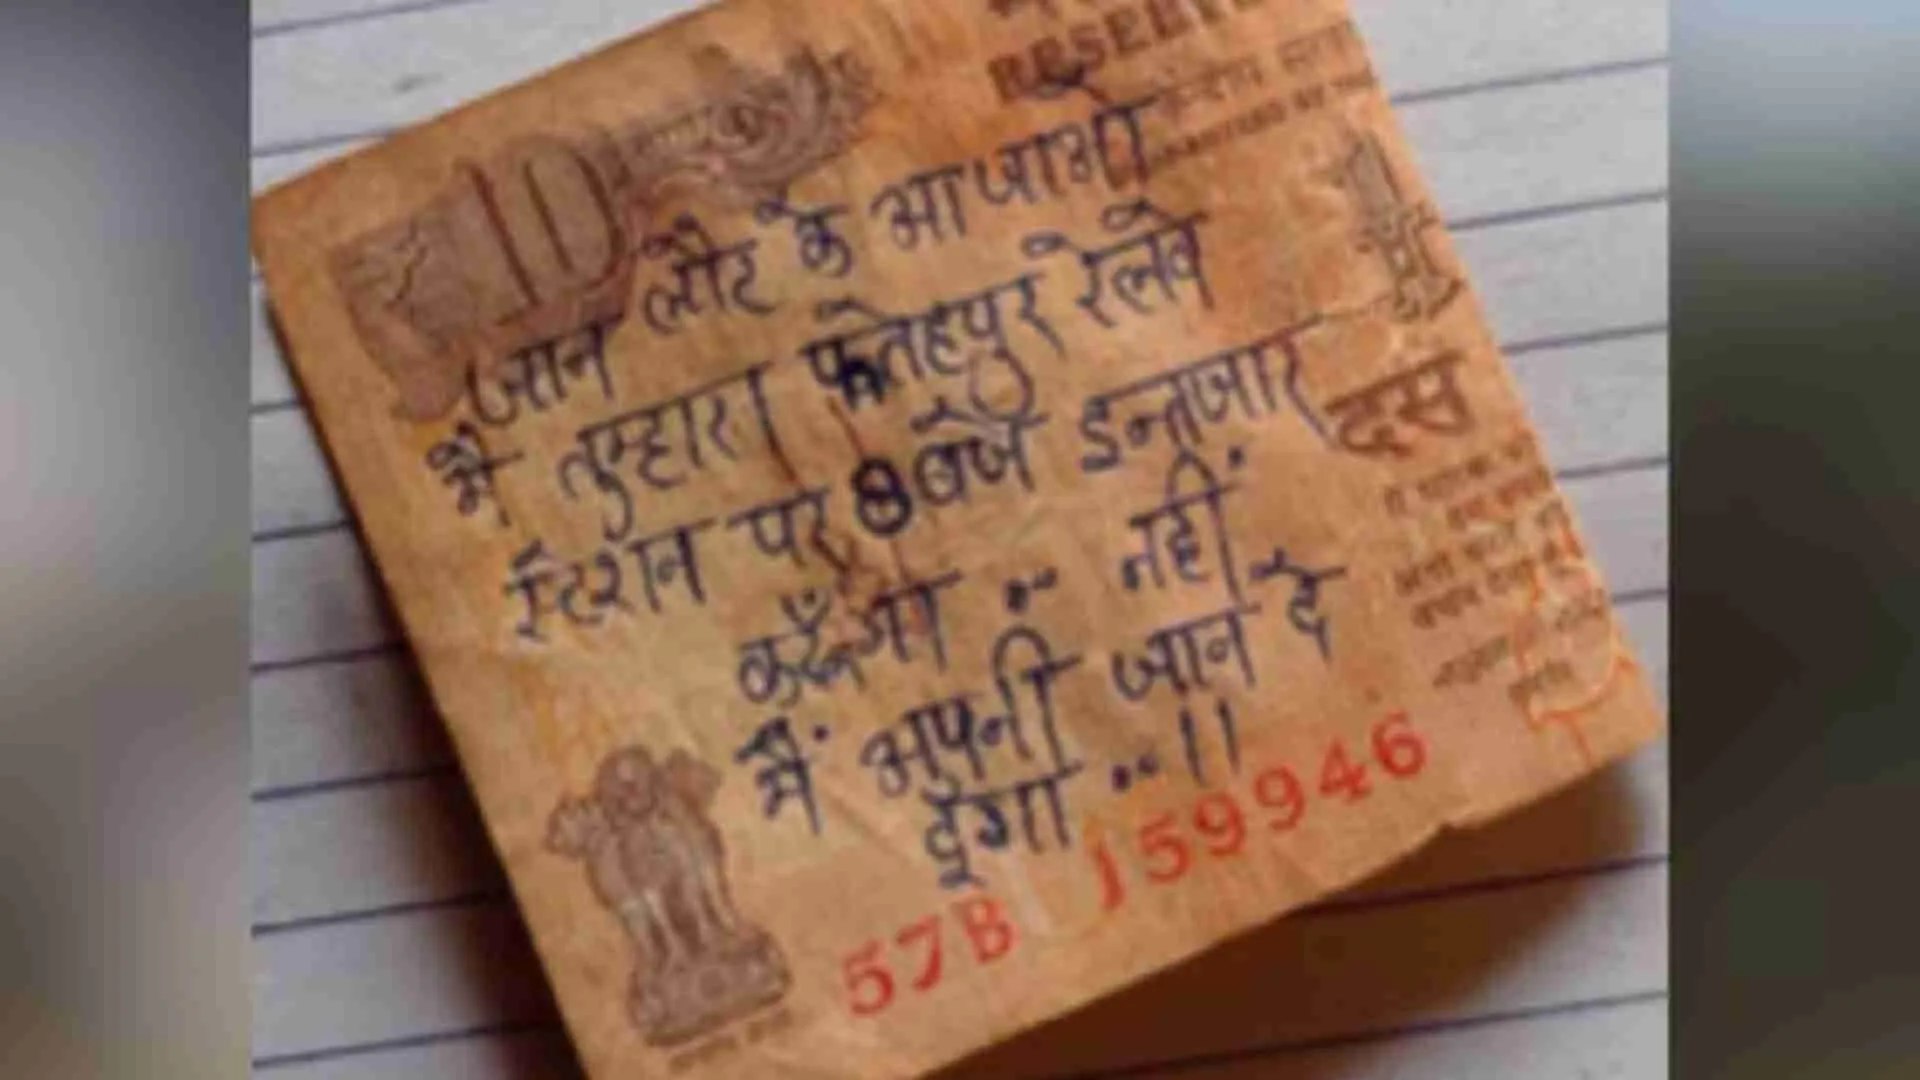 10
RESERVE
जान लौट के आ जाओ
मैं तुम्हारा फतेहपुर रेलवे
स्टेशन पर 8 बजे इन्तजार
करूँगा .. नहीं
मैं अपनी जान दे
दूंगा ..।।
दस
57B 159946